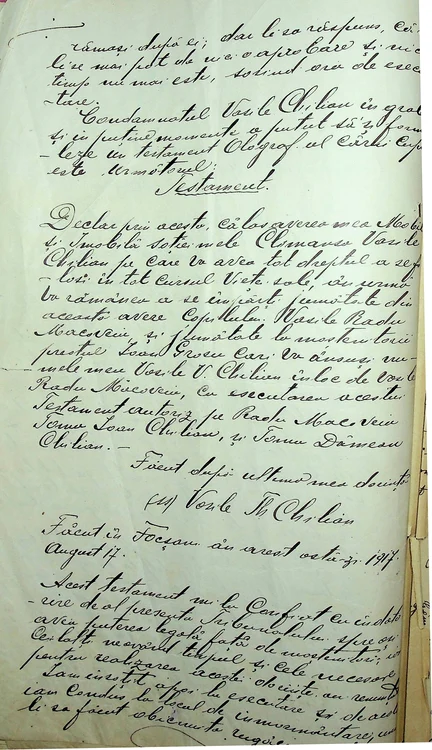 rămași după ei; dar li sa răspuns, că
li se mai pot da nici o aprobare și nici
timp nu mai este, sosind ora de esecu
-tare.
Condamnatul Vasile Chilian în grab
și în puține momente a putut să'și form
-leze un testament Olograf al cărui cop
este următorul:
Testament.
Declar prin acesta, că las averea mea Mobil
și Imobilă soției mele Vasile
Chilian pe care va avea tot dreptul a se f
-losi în tot cursul Vieței sale, în urmă
Va rămânea a se împărți jumătate din
această avere Copilului Vasile Radu
Macovein și jumătate la moștenitorii
preotul Ioan Grosu cari va însuși nu-
-mele meu Vasile V. Chilian în loc de Vasile
Radu Macovein, cu esecutarea acestui
Testament autoriz pe Radu Macovein
Toma Ioan Chilian, și Toma
Chilian.—
Făcut după ultima mea dorință
(ss) Vasile Th Chilian
Făcut în Focșani în arest astăzi 1917
August 17.
Acest testament mi la Confiat cu îndato
-rire de al presenta Tribunalului spre a
avea puterea legală față de moștenitori,
Ceilalți neavând timpul și cele necesare
pentru realizarea acestei dorințe au renunțat
Iam însoțit apoi la esecutare și de acol
iam condus la locul de înmormântare, un
li sa făcut obicinuita